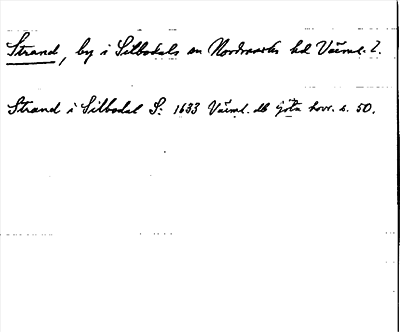 Strand, by i Silbodals sn Nordmarks hd Värml. l.
Strand i Silbodal S: 1633 Värml. db Göta hovr. s. 50.